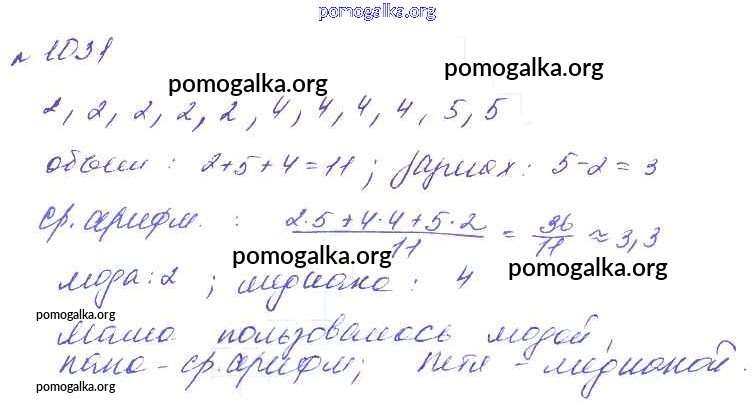 pomogalka.org
№ 1031
pomogalka.org
pomogalka.org
2, 2, 2, 2, 2, 4, 4, 4, 4, 5, 5
объем : 2+5+4=11 ; размах : 5-2 = 3
ср. арифм. : 2·5+4·4+5·2 / 11 = 36 / 11 ≈ 3,3
pomogalka.org
pomogalka.org
мода : 2 ; медиана : 4
pomogalka.org
Маша пользовалась модой,
папа - ср. арифм ; Петя - медианой.
pomogalka.org